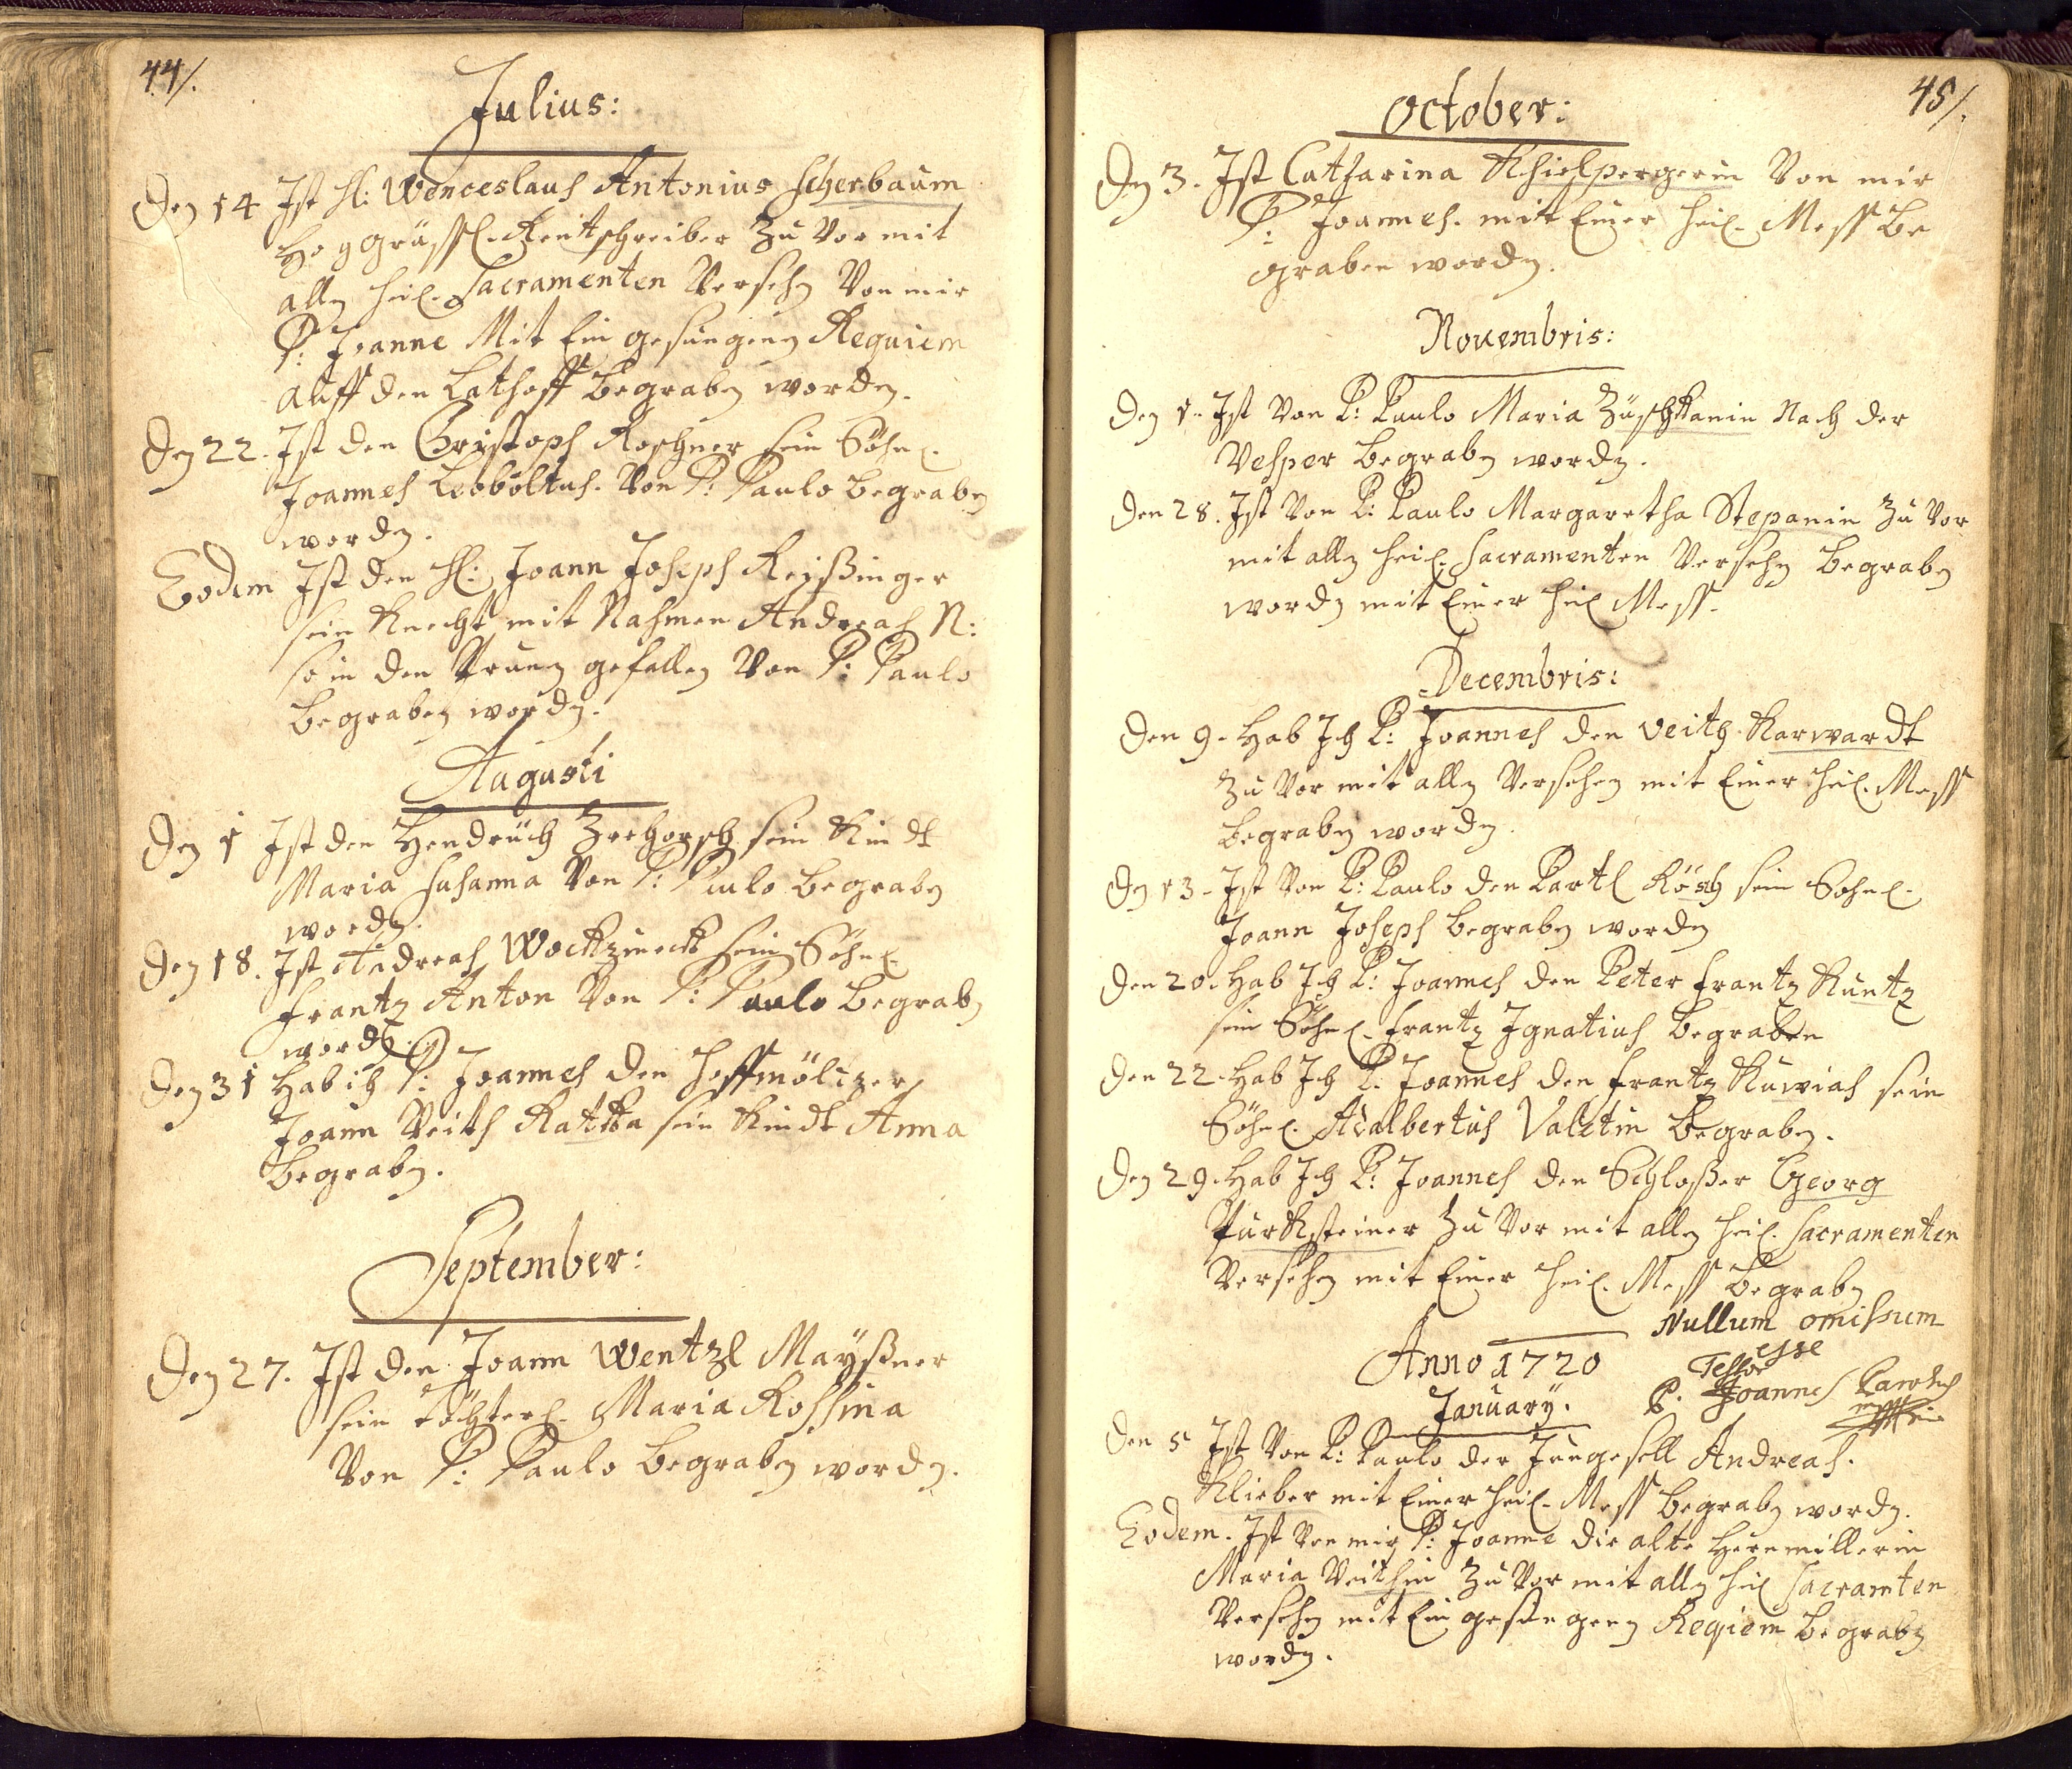 44/.
Julius:
Den 14 Ist H: Wenceslaus Antonius Scherbaum
Hoggräffl. Rentschreiber zu vor mit
allen heil. Sacramenten Versehen Von mir
P: Joanne Mit Ein gesungenen Requiem
auff den begraben worden.
Den 22. Ist den Christoph Roschner sein Söhnl.
Joannes Leoboltus. Von P: Paulo begraben
worden.
Eodem Ist den H: Joann Joseph Reißinger
sein Knecht mit Nahmen Andreas N:
so in den Prunn gefallen Von P: Paulo
begraben worden.
Augusti
Den 1 Ist den Hendrüch Zrehorsch sein Kindt
Maria Susanna Von P: Paulo begraben
worden.
Den 18. Ist Andreas sein Söhnl.
Frantz Anton Von P: Paulo begraben
worden.
Den 31 Hab ich P: Joannes den
Joann Veith Rattka sein Kindt Anna
begraben.
September:
Den 27. Ist den Joann Wentzl Mayßner
sein töchterl. Maria Rossina
Von P: Paulo begraben worden.
45/.
October:
Den 3. Ist Catharina Khielpergerin Von mir
P: Joannes. mit Einer heil. Mess be
graben worden.
Novembris:
Den 1. Ist Von P: Paulo Maria Züschkanin Nach der
Vesper begraben worden.
Den 28. Ist Von P: Paulo Margaretha Stepanin zu vor
mit allen heil: Sacramenten Versehen begraben
worden mit Einer heil Mess.
Decembris:
Den 9. Hab Ich P: Joannes den Veith Karwardt
zu vor mit allen Versehen mit Einer heil. Mess
begraben worden.
Den 13. Ist Von P: Paulo den Partl Rösch sein Söhnl.
Joann Joseph begraben worden
Den 20. Hab Ich P: Joannes den Peter Frantz Kuntz
sein Söhnl. Frantz Ignatius begraben
Den 22. Hab Ich P: Joannes den Frantz Kuwias sein
Söhnl. Adalbertus Valetin begraben.
Den 29. Hab Ich P: Joannes den Schloßer Georg
Purksteiner zu vor mit allen heil. Sacramenten
Versehen mit Einer heil. Mess begraben
Nullum omissum
esse
Testor
P. Joannes
Anno 1720
January.
Den 5 Ist Von P: Paulo der Jungesell Andreas.
Klieber mit Einer heil. Mess begraben worden.
Eodem. Ist Von mir P: Joanne die alte Herrmillerin
Maria Veithin zu vor mit allen heil Sacramten
Versehen mit Ein gesungenen Reqiem begraben
worden.